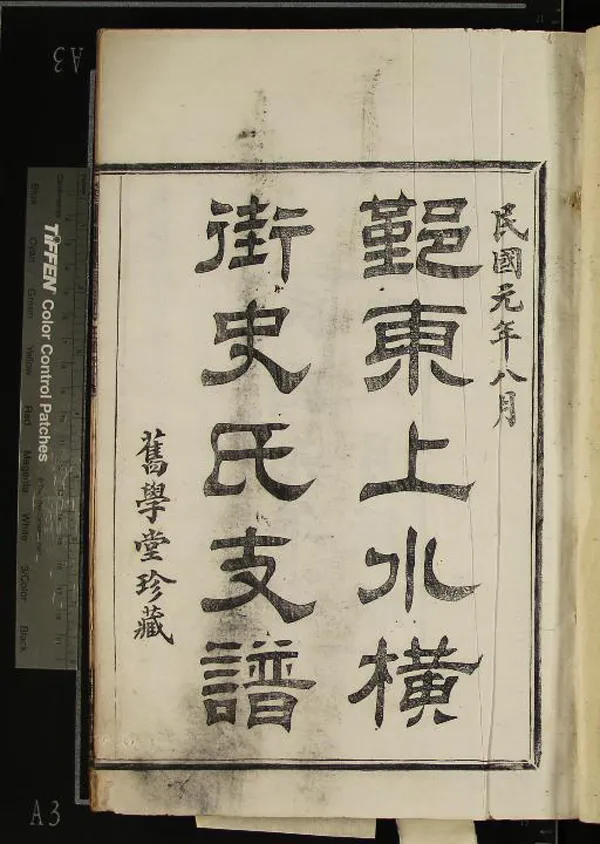 民國元年八月
鄞東上水橫
街史氏支譜
舊學堂珍藏
TIFFEN Color Control Patches
Blue Cyan Green Yellow Red Magenta White 3/Color Black
A3
A3